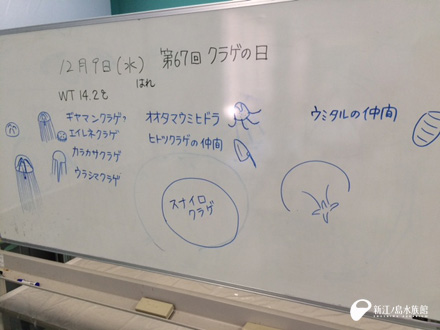 12月9日(水) 第67回 クラゲの日
はれ
WT 14.2℃
ギヤマンクラゲ?
エイレネクラゲ
カラカサクラゲ
ウラシマクラゲ
オオタマウミヒドラ
ヒトツクラゲの仲間
ウミタルの仲間
スナイロ
クラゲ
新江ノ島水族館